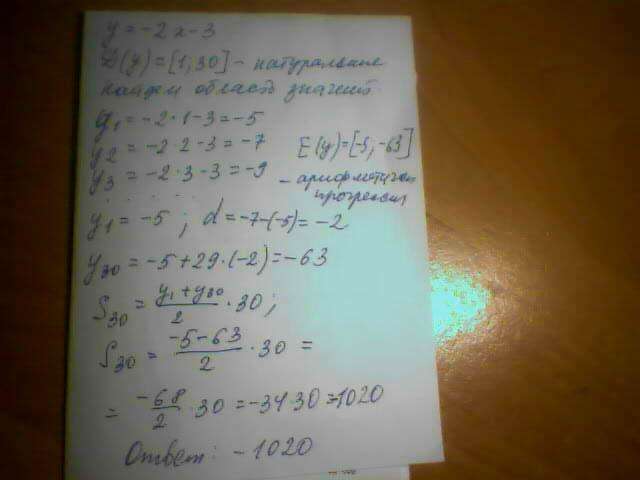 y = -2x - 3
D(y) = [1; 30] - натуральные
найдём область значений
y1 = -2·1-3 = -5
y2 = -2·2-3 = -7
y3 = -2·3-3 = -9
E(y) = [-5; -63]
- арифметическ
прогрессия
y1 = -5; d = -7-(-5) = -2
y30 = -5+29·(-2) = -63
S30 = (y1+y30)/2 · 30;
S30 = (-5-63)/2 · 30 =
= -68/2 · 30 = -34·30 = -1020
Ответ: -1020